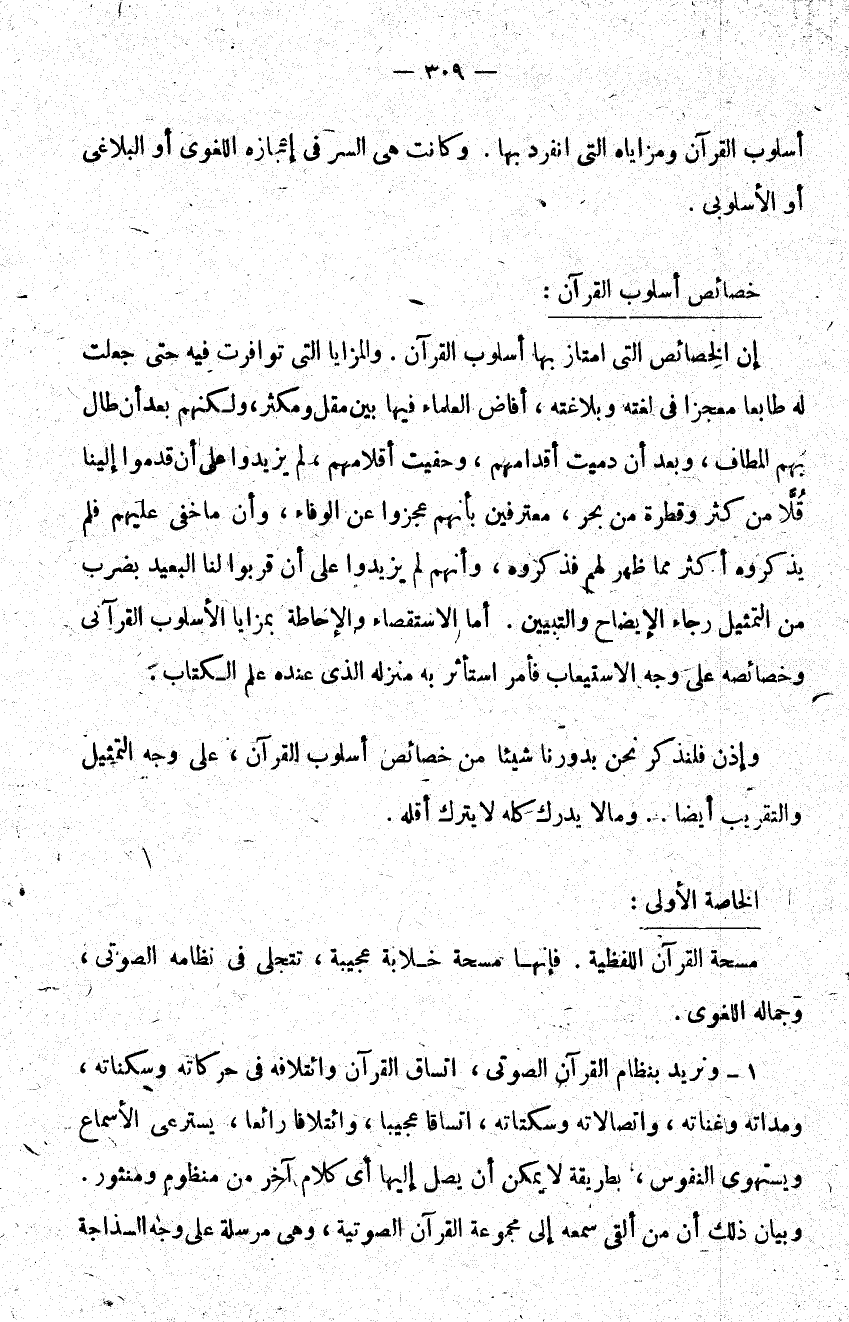 — ٣٠٩ —
أسلوب القرآن ومزاياه التى انفرد بها . وكانت هى السر فى إعجازه اللغوى أو البلاغى
أو الأسلوبى .
خصائص أسلوب القرآن :
إن الخصائص التى امتاز بها أسلوب القرآن . والمزايا التى توافرت فيه حتى جعلت
له طابعا معجزا فى لغته وبلاغته ، أفاض العلماء فيها بين مقل ومكثر ، ولكنهم بعد أن طال
بهم المطاف ، وبعد أن دميت أقدامهم ، وحفيت أقلامهم ، لم يزيدوا على أن قدموا إلينا
قُلًّا من كثر وقطرة من بحر ، معترفين بأنهم عجزوا عن الوفاء ، وأن ماخفى عليهم فلم
يذكروه أكثر مما ظهر لهم فذكروه ، وأنهم لم يزيدوا على أن قربوا لنا البعيد بضرب
من التمثيل رجاء الإيضاح والتبيين . أما الاستقصاء والإحاطة بمزايا الأسلوب القرآنى
وخصائصه على وجه الاستيعاب فأمر استأثر به منزله الذى عنده علم الكتاب .
وإذن فلنذكر نحن بدورنا شيئا من خصائص أسلوب القرآن ، على وجه التمثيل
والتقريب أيضا .. ومالا يدرك كله لا يترك أقله .
الخاصة الأولى :
مسحة القرآن اللفظية . فإنها مسحة خلابة عجيبة ، تتجلى فى نظامه الصوتى ،
وجماله اللغوى .
١ - ونريد بنظام القرآن الصوتى ، اتساق القرآن وائتلافه فى حركاته وسكناته ،
ومداته وغناته ، واتصالاته وسكتاته ، اتساقا عجيبا ، وائتلافا رائعا ، يسترعى الأسماع
ويستهوى النفوس ، بطريقة لا يمكن أن يصل إليها أى كلام آخر من منظوم ومنثور .
وبيان ذلك أن من ألقى سمعه إلى مجموعة القرآن الصوتية ، وهى مرسلة على وجه السذاجة